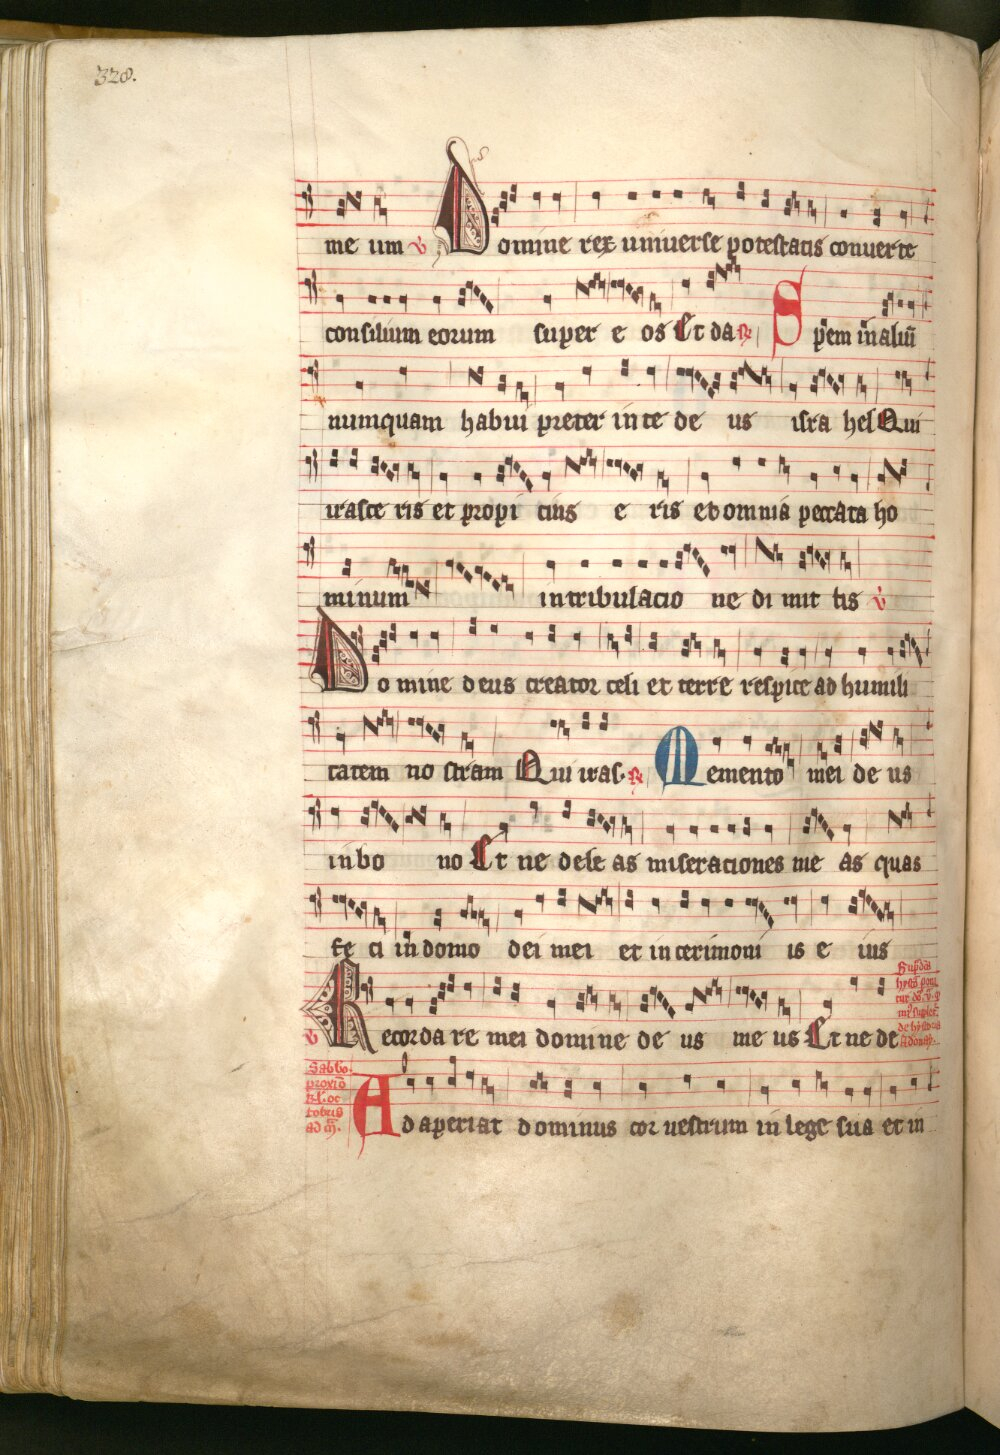 328.
me um v Domine rex universe potestatis converte
consilium eorum super e os Et da R Spem in aliu
numquam habui preter in te de us isra hel Qui
irasce ris et propi cius e ris et omnia peccata ho
minum in tribulacio ne di mit tis v
Do mine deus creator celi et terre respice ad humili
tatem no stram Qui iras. R Memento mei de us
in bo no Et ne dele as miseraciones me as quas
fe ci in domo dei mei et in cerimoni is e ius
v Recorda re mei domine de us me us Et ne de
Sabbo.
ad
Adaperiat dominus cor vestrum in lege sua et in